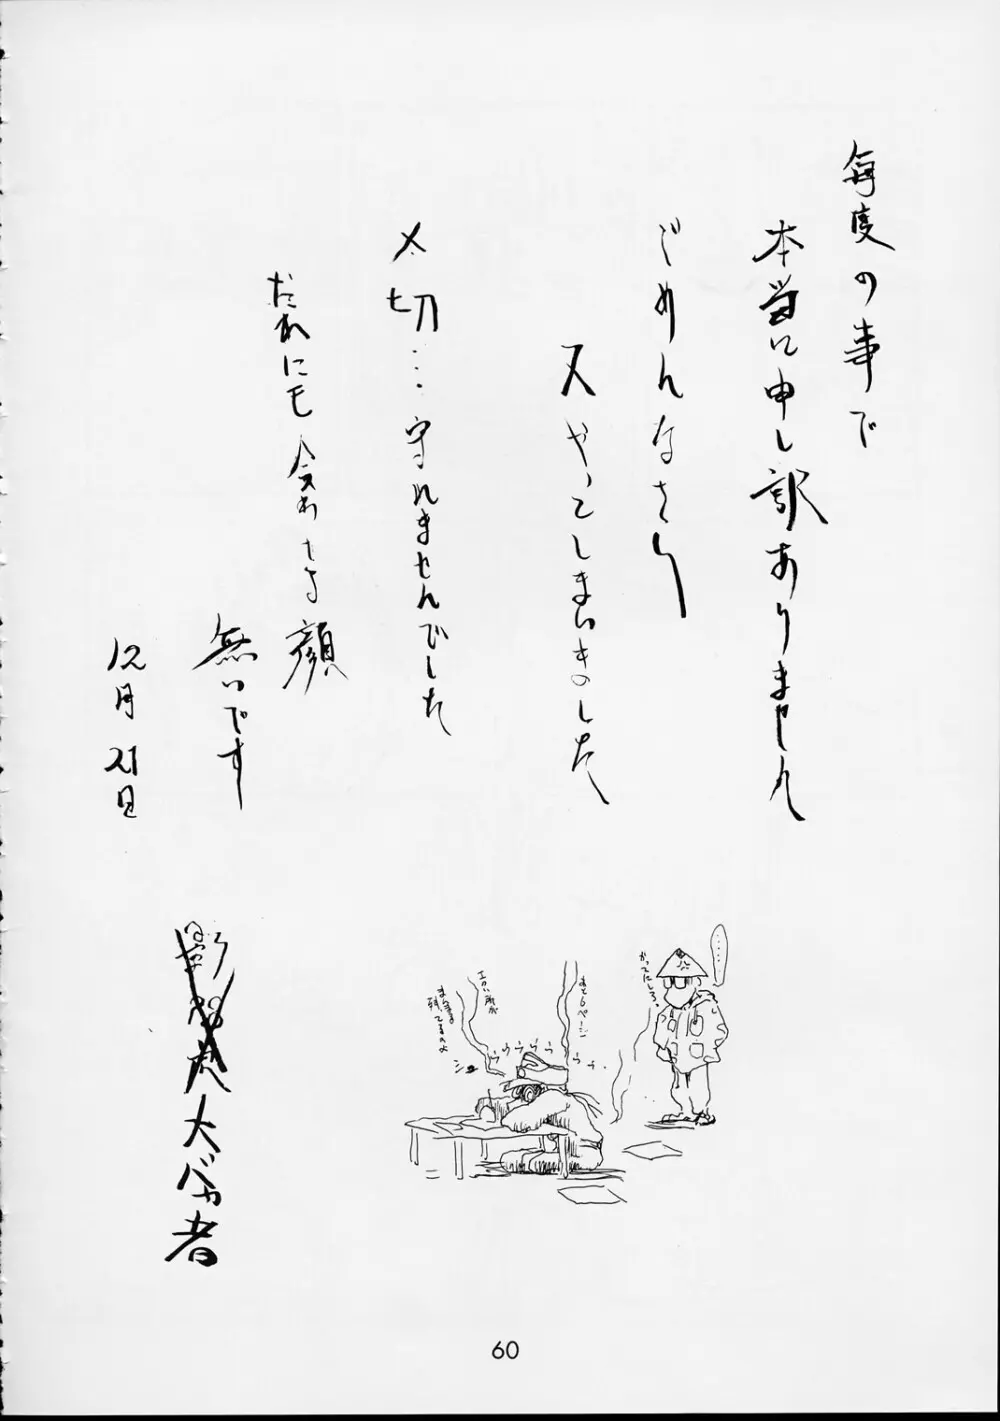 毎度の事で
本当に申し訳ありません
ごめんなさい
又やってしまいました
〆切…守れませんでした
だれにも会わす顔
無いです
12月21日
影武虎大バカ者
……
かってにしろ。
あと6ページ
うううううう
エロい所が
まだまだ
残ってるのよ
60